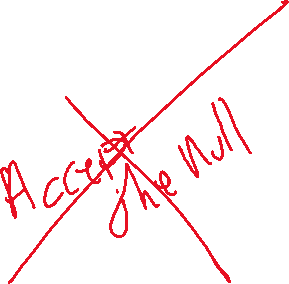 Accept
the Null